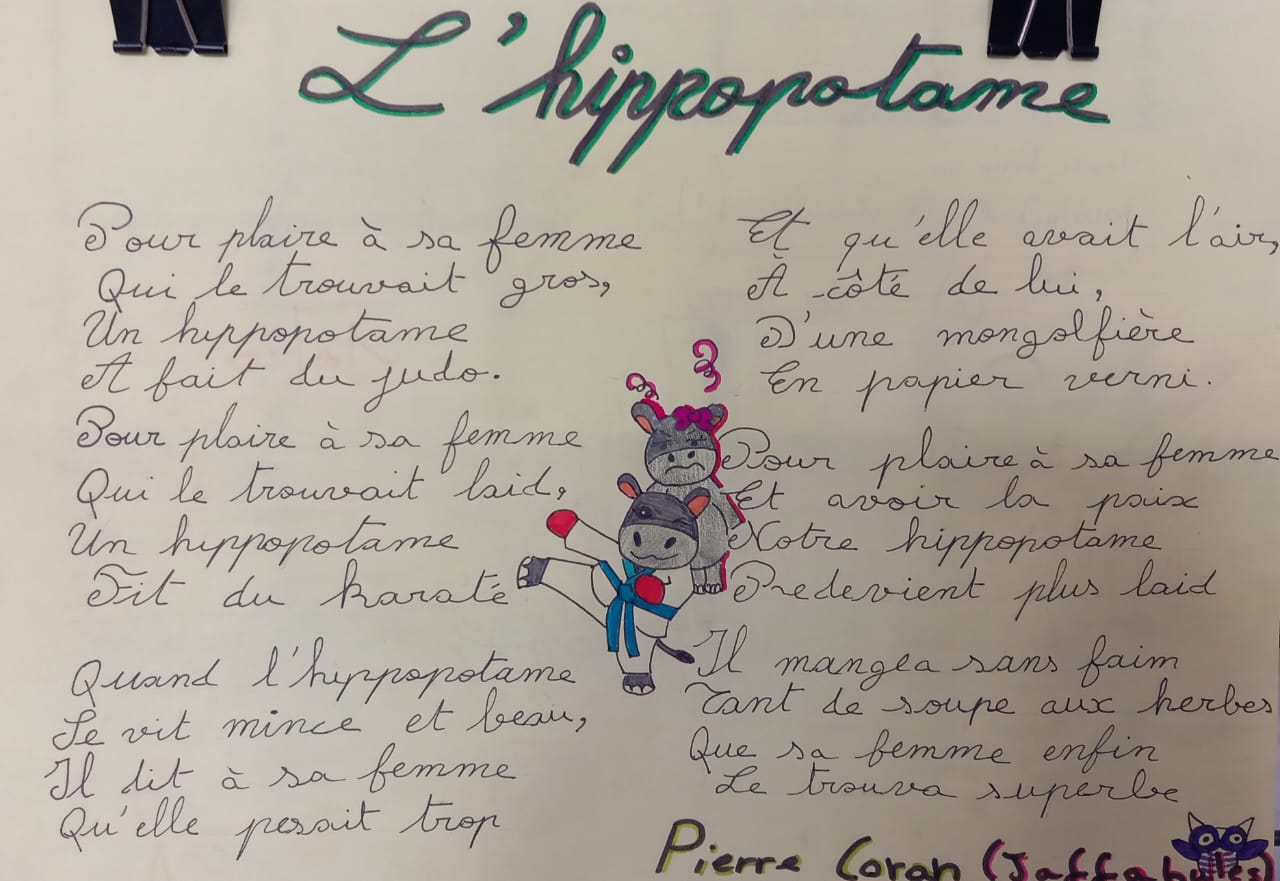 L'hippopotame
Pour plaire à sa femme
Qui le trouvait gros,
Un hyppopotame
A fait du judo.
Pour plaire à sa femme
Qui le trouvait laid,
Un hyppopotame
Fit du karaté
Quand l'hyppopotame
Se vit mince et beau,
Il dit à sa femme
Qu'elle pesait trop
Et qu'elle avait l'air,
À côté de lui,
D'une mongolfière
En papier verni.
Pour plaire à sa femme
Et avoir la paix
Notre hippopotame
Redevient plus laid
Il mangea sans faim
Tant de soupe aux herbes
Que sa femme enfin
Le trouva superbe
Pierre Coran (Jaffabules)